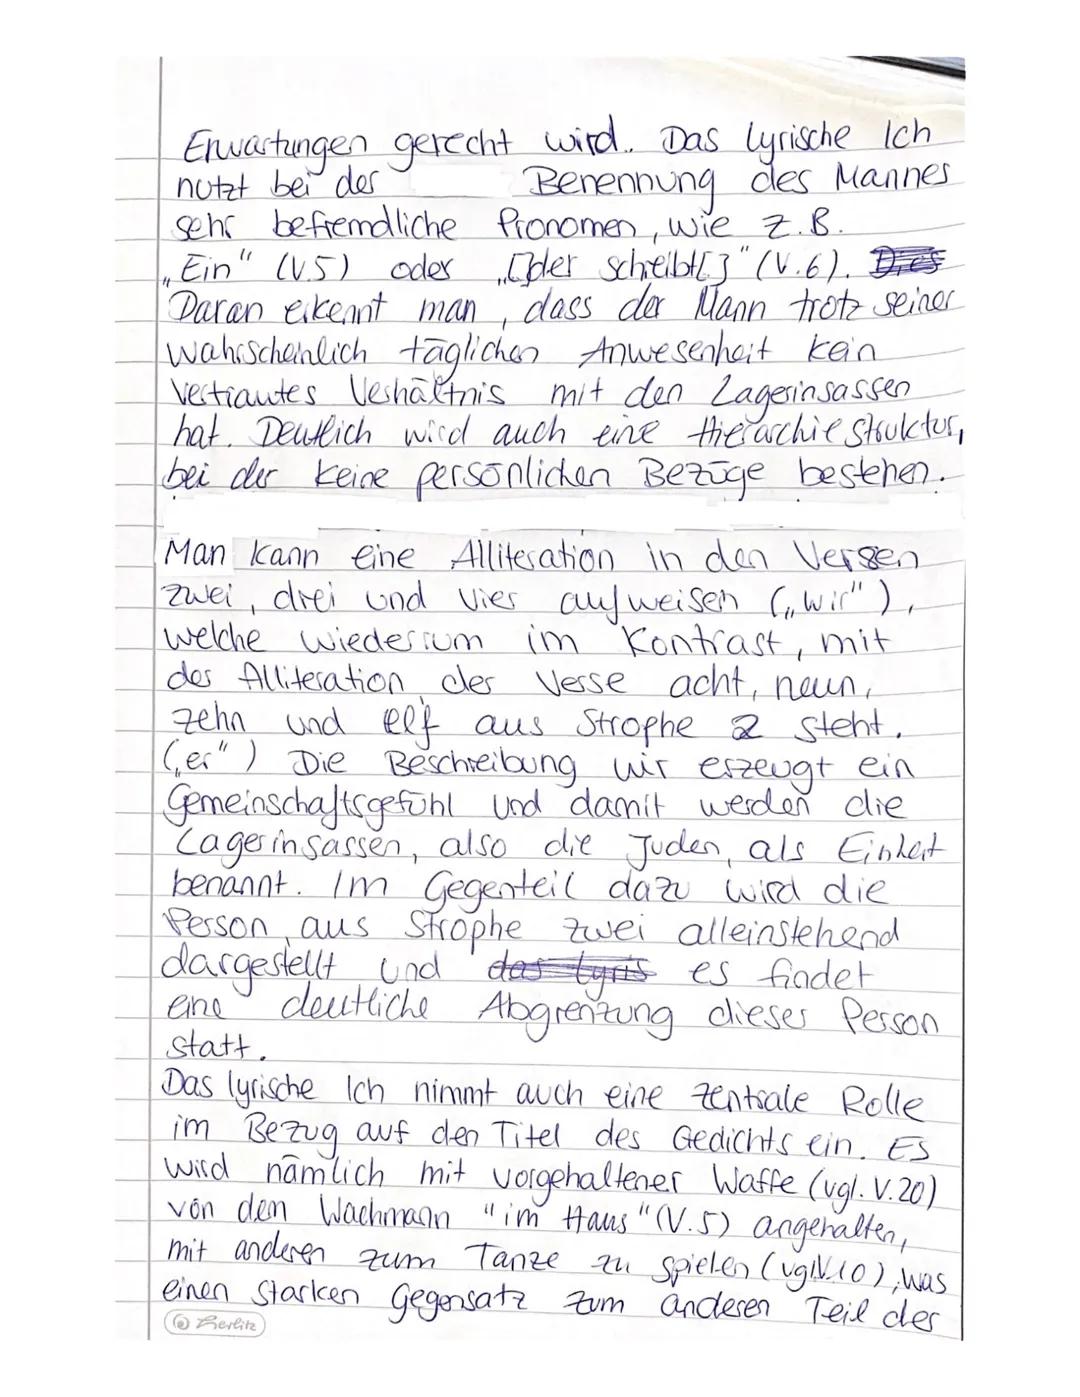 Erwartungen gerecht wird.. Das lyrische Ich
nutzt bei der Benennung des Mannes
sehr befremdliche Pronomen, wie z.B.
„Ein" (V.5) oder „[]der schreibt[]" (V.6). Dies
Daran erkennt man, dass der Mann trotz seiner
wahrscheinlich täglichen Anwesenheit kein
vertrautes Verhältnis mit den Lagerinsassen
hat. Deutlich wird auch eine Hierarchiestruktur,
bei der keine persönlichen Bezüge bestehen.
Man kann eine Alliteration in den Versen
zwei, drei und vier aufweisen („wir"),
welche wiederrum im Kontrast, mit
der Alliteration der Verse acht, neun,
zehn und elf aus Strophe 2 steht.
(„er") Die Beschreibung wir erzeugt ein
Gemeinschaftsgefühl und damit werden die
Lagerinsassen, also die Juden, als Einheit
benannt. Im Gegenteil dazu wird die
Person aus Strophe zwei alleinstehend
dargestellt und das lyris es findet
eine deutliche Abgrenzung dieser Person
statt.
Das lyrische Ich nimmt auch eine zentrale Rolle
im Bezug auf den Titel des Gedichts ein. Es
wird nämlich mit vorgehaltener Waffe (vgl. V.20)
von dem Wachmann "im Haus" (V.5) angehalten,
mit anderen zum Tanze zu spielen (vgl.V.10), was
einen starken Gegensatz zum anderen Teil der
Herlitz